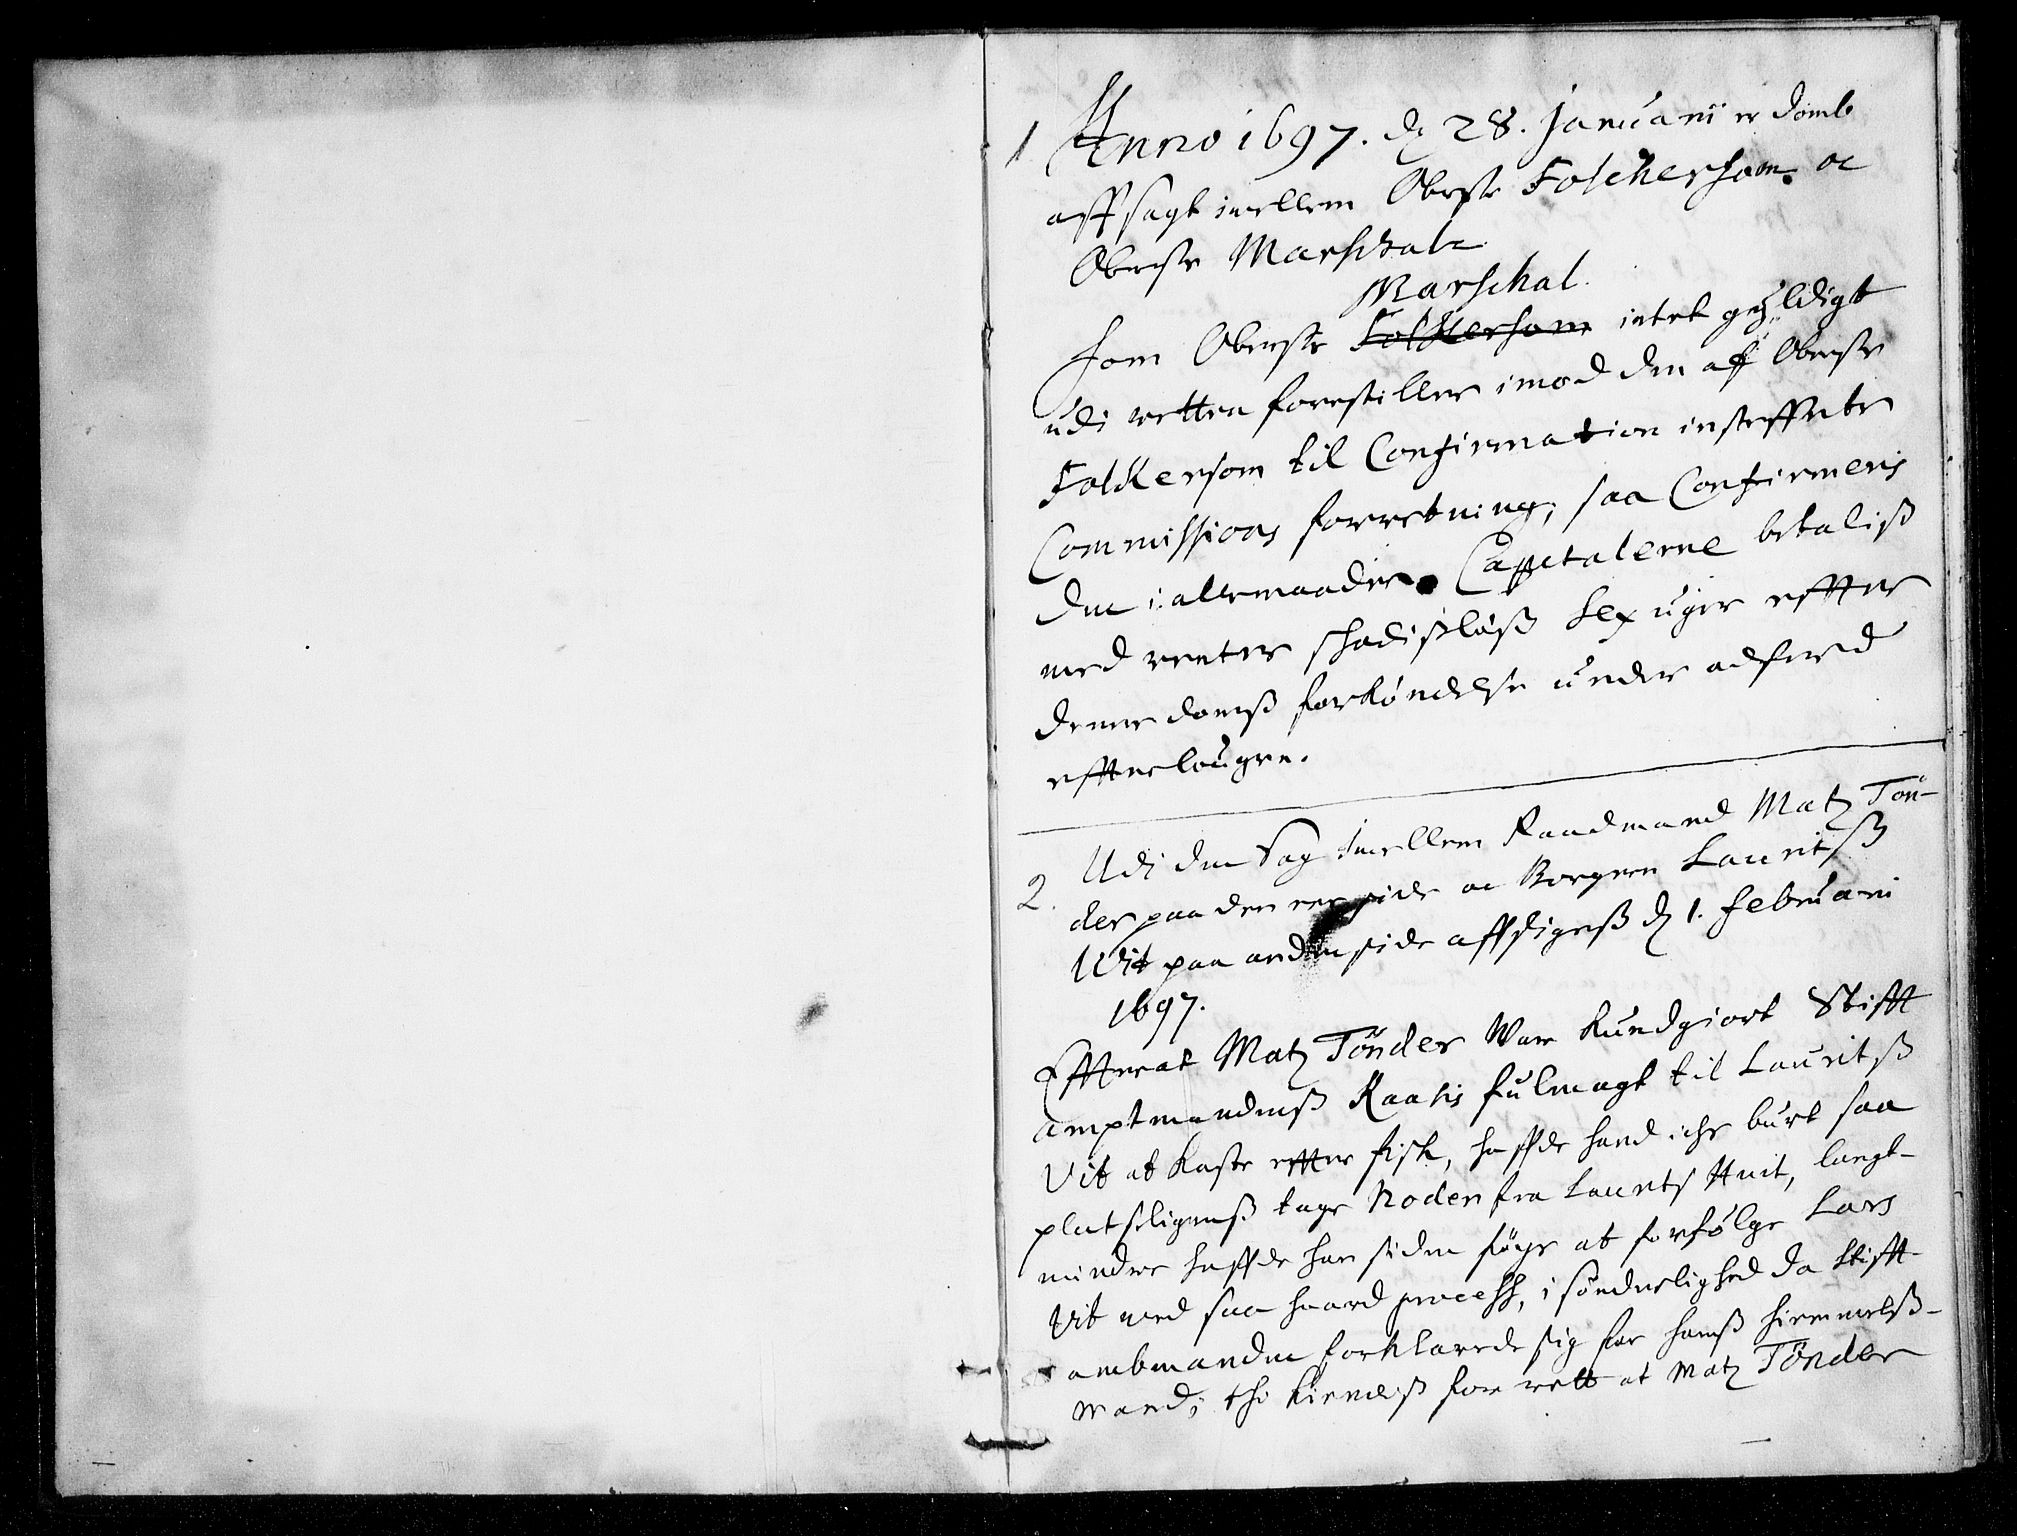 1 Anno 1697. dẏ 28. Januarii er domb
affsagt imellem Oberste Folckersam. oc
Oberste Marschalk
Marschal.
Som Oberste Folkersam intet gyldigt
udi retten forestiller imod den aff Oberste
Folkersom til Confirmation insteffnte
Commissions forretning, saa Confirmeris
den i alle maader. Capitalerne betaliß
med renter skadisløß sex uger effter
denne domß forkyndelse under adferd
effter lougen.
2. Udi den Sag imellem Raadmand Matz Tøn-
der paa den ene side oc Borgeren Lauritß
Wit paa anden side affsigeß dẏ 1. februarii
1697.
Efterat Matz Tønder War kundgiort Stifft
amptmandenß Raatis fulmagt til Lauritß
Vit at kaste effter fisk, haffde hand icke burt saa
plutseligenß tage Noden fra Laurits Huit, langt-
mindre haffde han siden føye at forfølge Lars
Vit med saa haard process, i sønderlighed da stifft
ambtmanden forklarede sig for hanß hiemmelß-
mand; thi kiendeß for rett at Matz Tønder